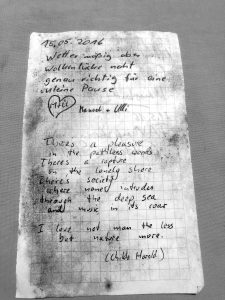 15.05.2016
Wetter mäßig aber
Wolkenlücke naht
genau richtig für eine
schöne Pause
H+U
+ Ulli
There's a pleasure
in the pathless woods
There's a rapture
on the lonely shore
There's society
where none intrudes
through the deep sea
and music in its roar
I love not man the less
but nature more.
(Childe Harold)